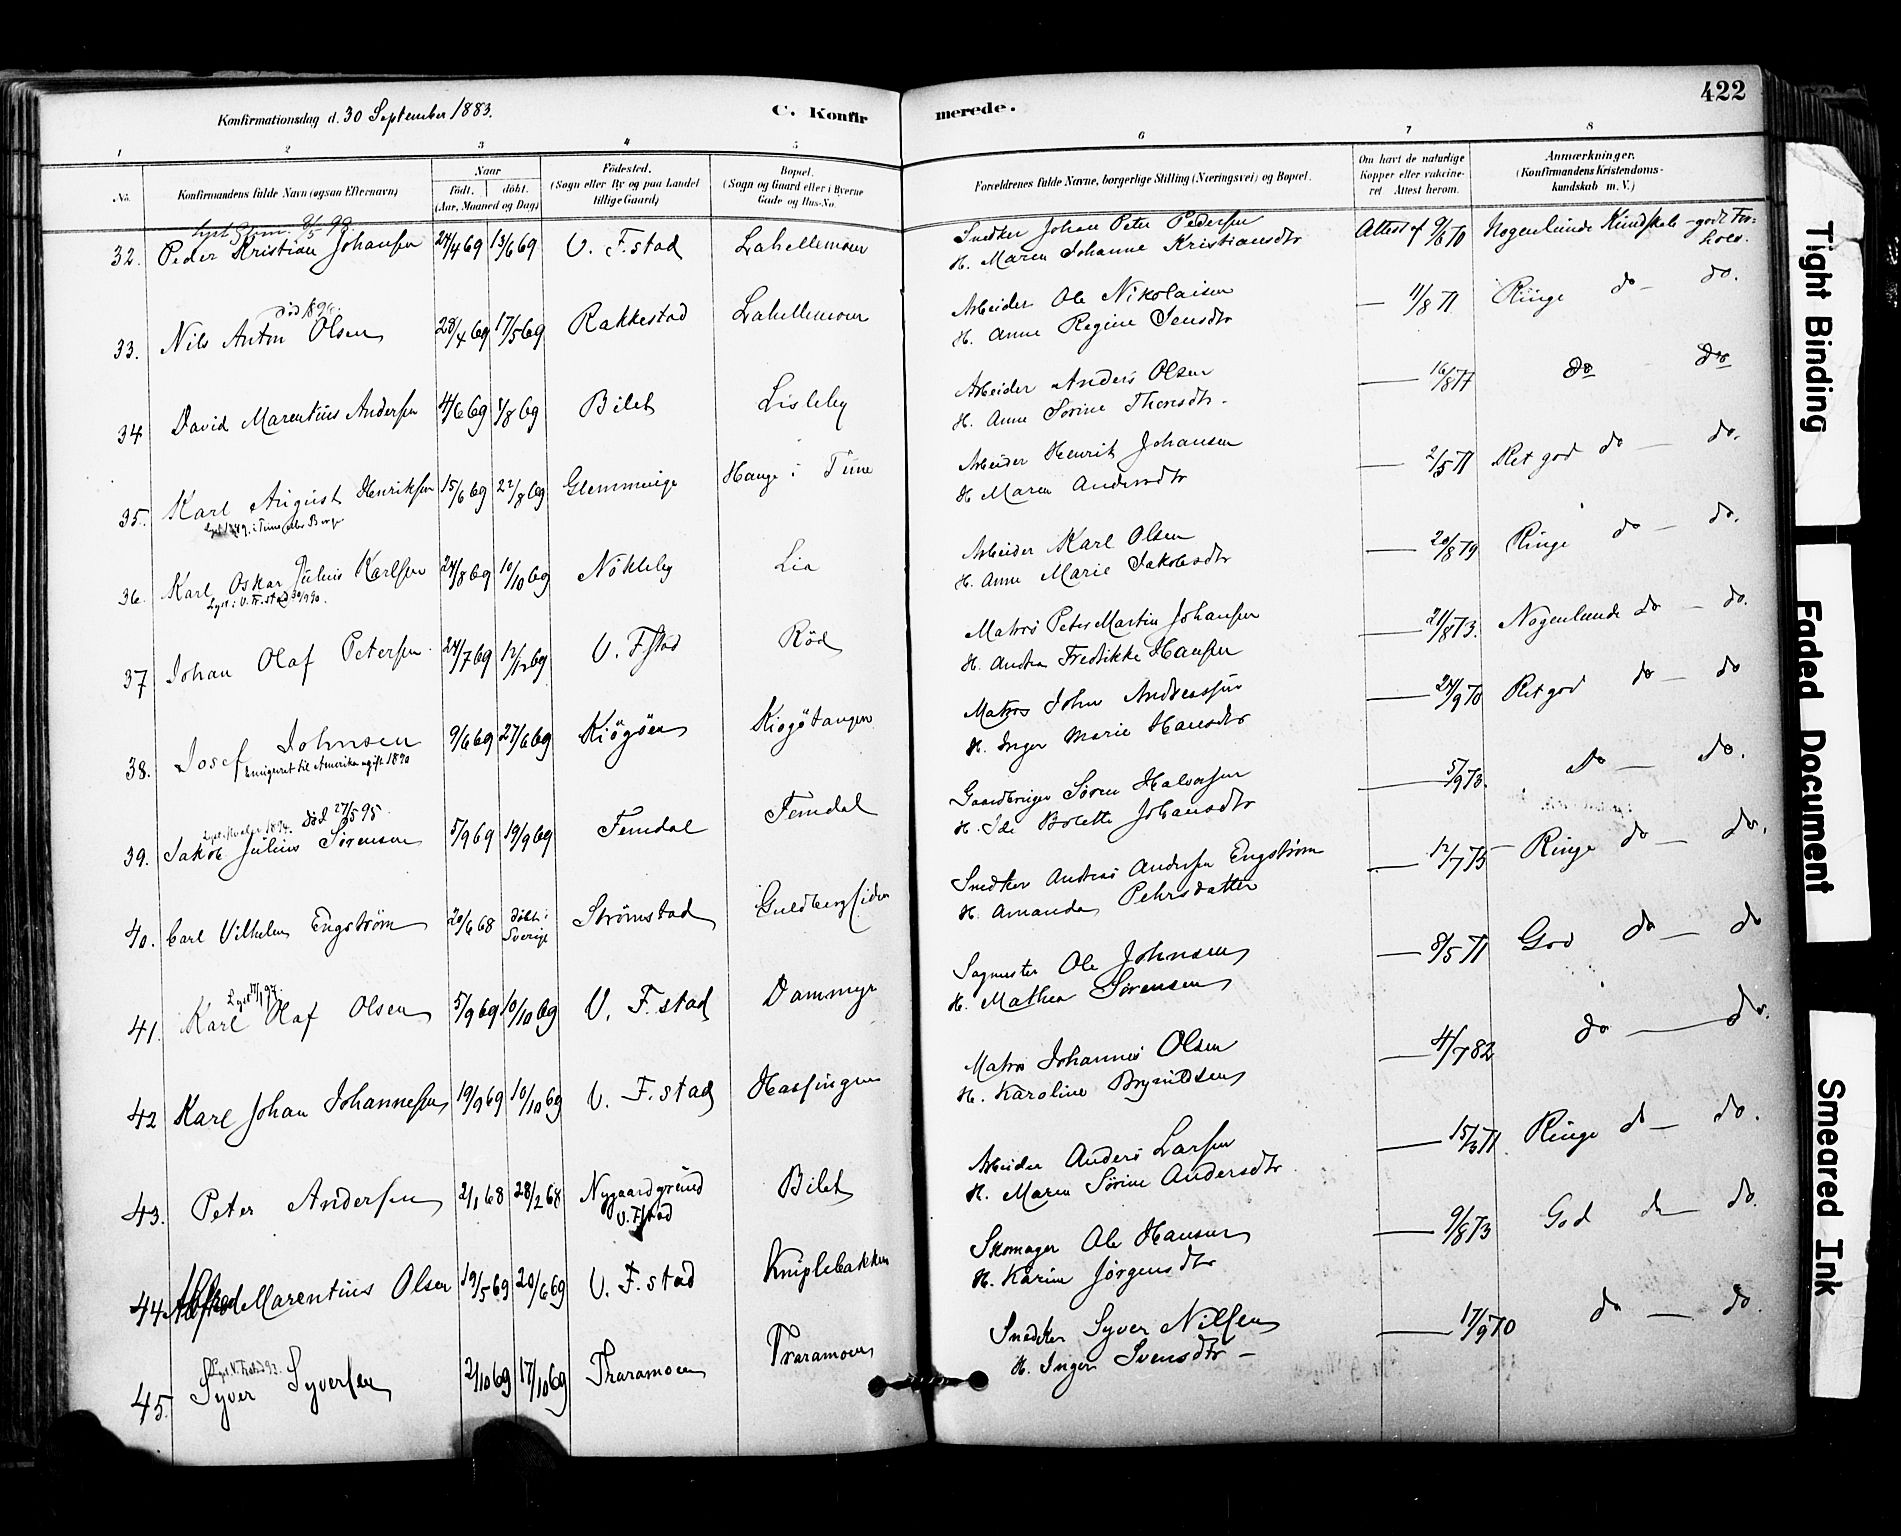 422
Konfirmationsdag d. 30 September 1883.
C. Konfir merede.
1 2 3 4 5 6 7 8
No. Konfirmandens fulde Navn (ogsaa Efternavn) Naar født. døbt. (Aar, Maaned og Dag) Fødested. (Sogn eller By og paa Landet tillige Gaard) Bopæl. (Sogn og Gaard eller i Byerne Gade og Hus-No. Forældrenes fulde Navne, borgerlige Stilling (Næringsvei) og Bopæl. Om havt de naturlige Kopper eller vakcineret Attest herom. Anmærkninger. (Konfirmandens Kristendomskundskab m. V.)
32. Peder Kristian Johansen 24/4 69 13/6 69 V. F.stad Lahellemoen Snedker Johan Peter Pedersen
H. Maren Johanne Kristiansdtr Attest af 9/6 70 Nogenlunde Kundskab - godt Forhold.
død 1896.
33. Nils Anton Olsen 28/4 69 17/5 69 Rakkestad Lahellemoen Arbeider Ole Nikolaisen
H. Anne Regine Jensdtr — 11/8 71 Ringe do - do.
34 David Marentius Andersen 4/6 69 1/8 69 Bilet Lisleby Arbeider Anders Olsen
H. Anne Sorine Thoresdtr. — 16/8 77 do do
35. Karl August Henriksen 15/6 69 22/8 69 Glemminge Hauge i Tune Arbeider Henrik Johansen
H Maren Andersdtr — 2/5 71 Ret god do — do.
36. Karl Oskar Julius Karlsen 24/8 69 10/10 69 Nökleby Lia Arbeider Karl Olsen
H. Anne Marie Jakobsdtr — 20/8 79 Ringe do — do.
Lyst i V. Fr.stad 30/9 90.
37 Johan Olaf Petersen 24/7 69 12/12 69 V. F.stad Röd Matros Peter Martin Johansen
H. Andrea Fredrikke Hansen — 21/8 73. Nogenlunde do — do.
38. Josef Johnsen 9/6 69 27/6 69 Kiögöen Kiögötangen Matros John Andreassen
H. Inger Marie Hansdtr — 24/9 70 Ret god do — do
Emigreret til Amerika ugift 1890
død 27/5 95
39. Jakob Julius Sörensen 5/9 69 19/9 69 Femdal Femdal Gaardbruger Sören Halvorsen
H. Ide Bolette Johansdtr — 5/9 73. Do — do.
40. Carl Vilhelm Engström 20/6 68 döbt i Sverige Strömstad Guldbergsiden Snedker Andreas Andersen Engström
H. Amanda Pehrsdatter — 12/7 75 — Ringe do — do.
41. Karl Olaf Olsen 5/9 69 10/10 69 V. F.stad Dammyr Sagmester Ole Johnsen
H. Mathea Sörensen — 8/5 71 God do — do
42 Karl Johan Johannesen 19/9 69 10/10 69 V. F.stad Hassingen Matros Johannes Olsen
H. Karoline Brynildsen — 4/7 82 do — do.
43. Peter Andersen 2/1 68 28/2 68 Nygaardgrund V. F.stad Bilet Arbeider Anders Larsen
H. Maren Sörine Andersdtr — 15/3 71 Ringe do — do.
44. Alfred Marentius Olsen 19/5 69 20/6 69 V. F.stad Kniplebakken Skomager Ole Hansen
H. Karine Jörgensdtr — 9/8 73 God do — do.
45. Syver Syversen 2/10 69 17/10 69 Traramoen Traramoen Snedker Syver Nilsen
H. Inger Svensdtr — — 17/9 70 do — do
Tight Binding
Faded Document
Smeared Ink